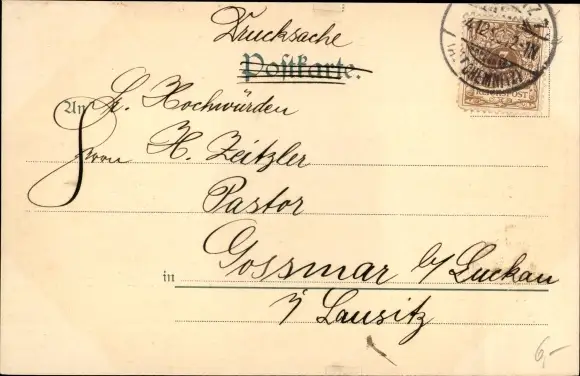 Drucksache
Postkarte.
An Sr. Hochwürden
Herrn H. Zeitzler
Pastor
in Gossmar b/ Luckau
i/ Lausitz
CHEMNITZ
REICHSPOST
6,-